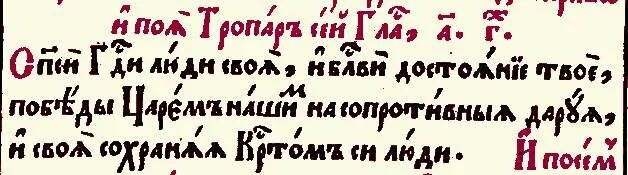 и҆ поѧ̀ Тропа́ръ се́й Глаⷭ҇, а҃. г҃.
Сп҃сѝ Гⷭ҇ди лю́ди своѧ̀, и҆ блⷭ҇вѝ достоѧ́нїе твоѐ,
побѣ́ды Царе́мъ на́шиⷨ на сопроти́вныѧ дарꙋ́ѧ,
и҆ своѧ̀ сохранѧ́ѧ Крⷭ҇то́мъ си лю́ди. И҆ посе́м